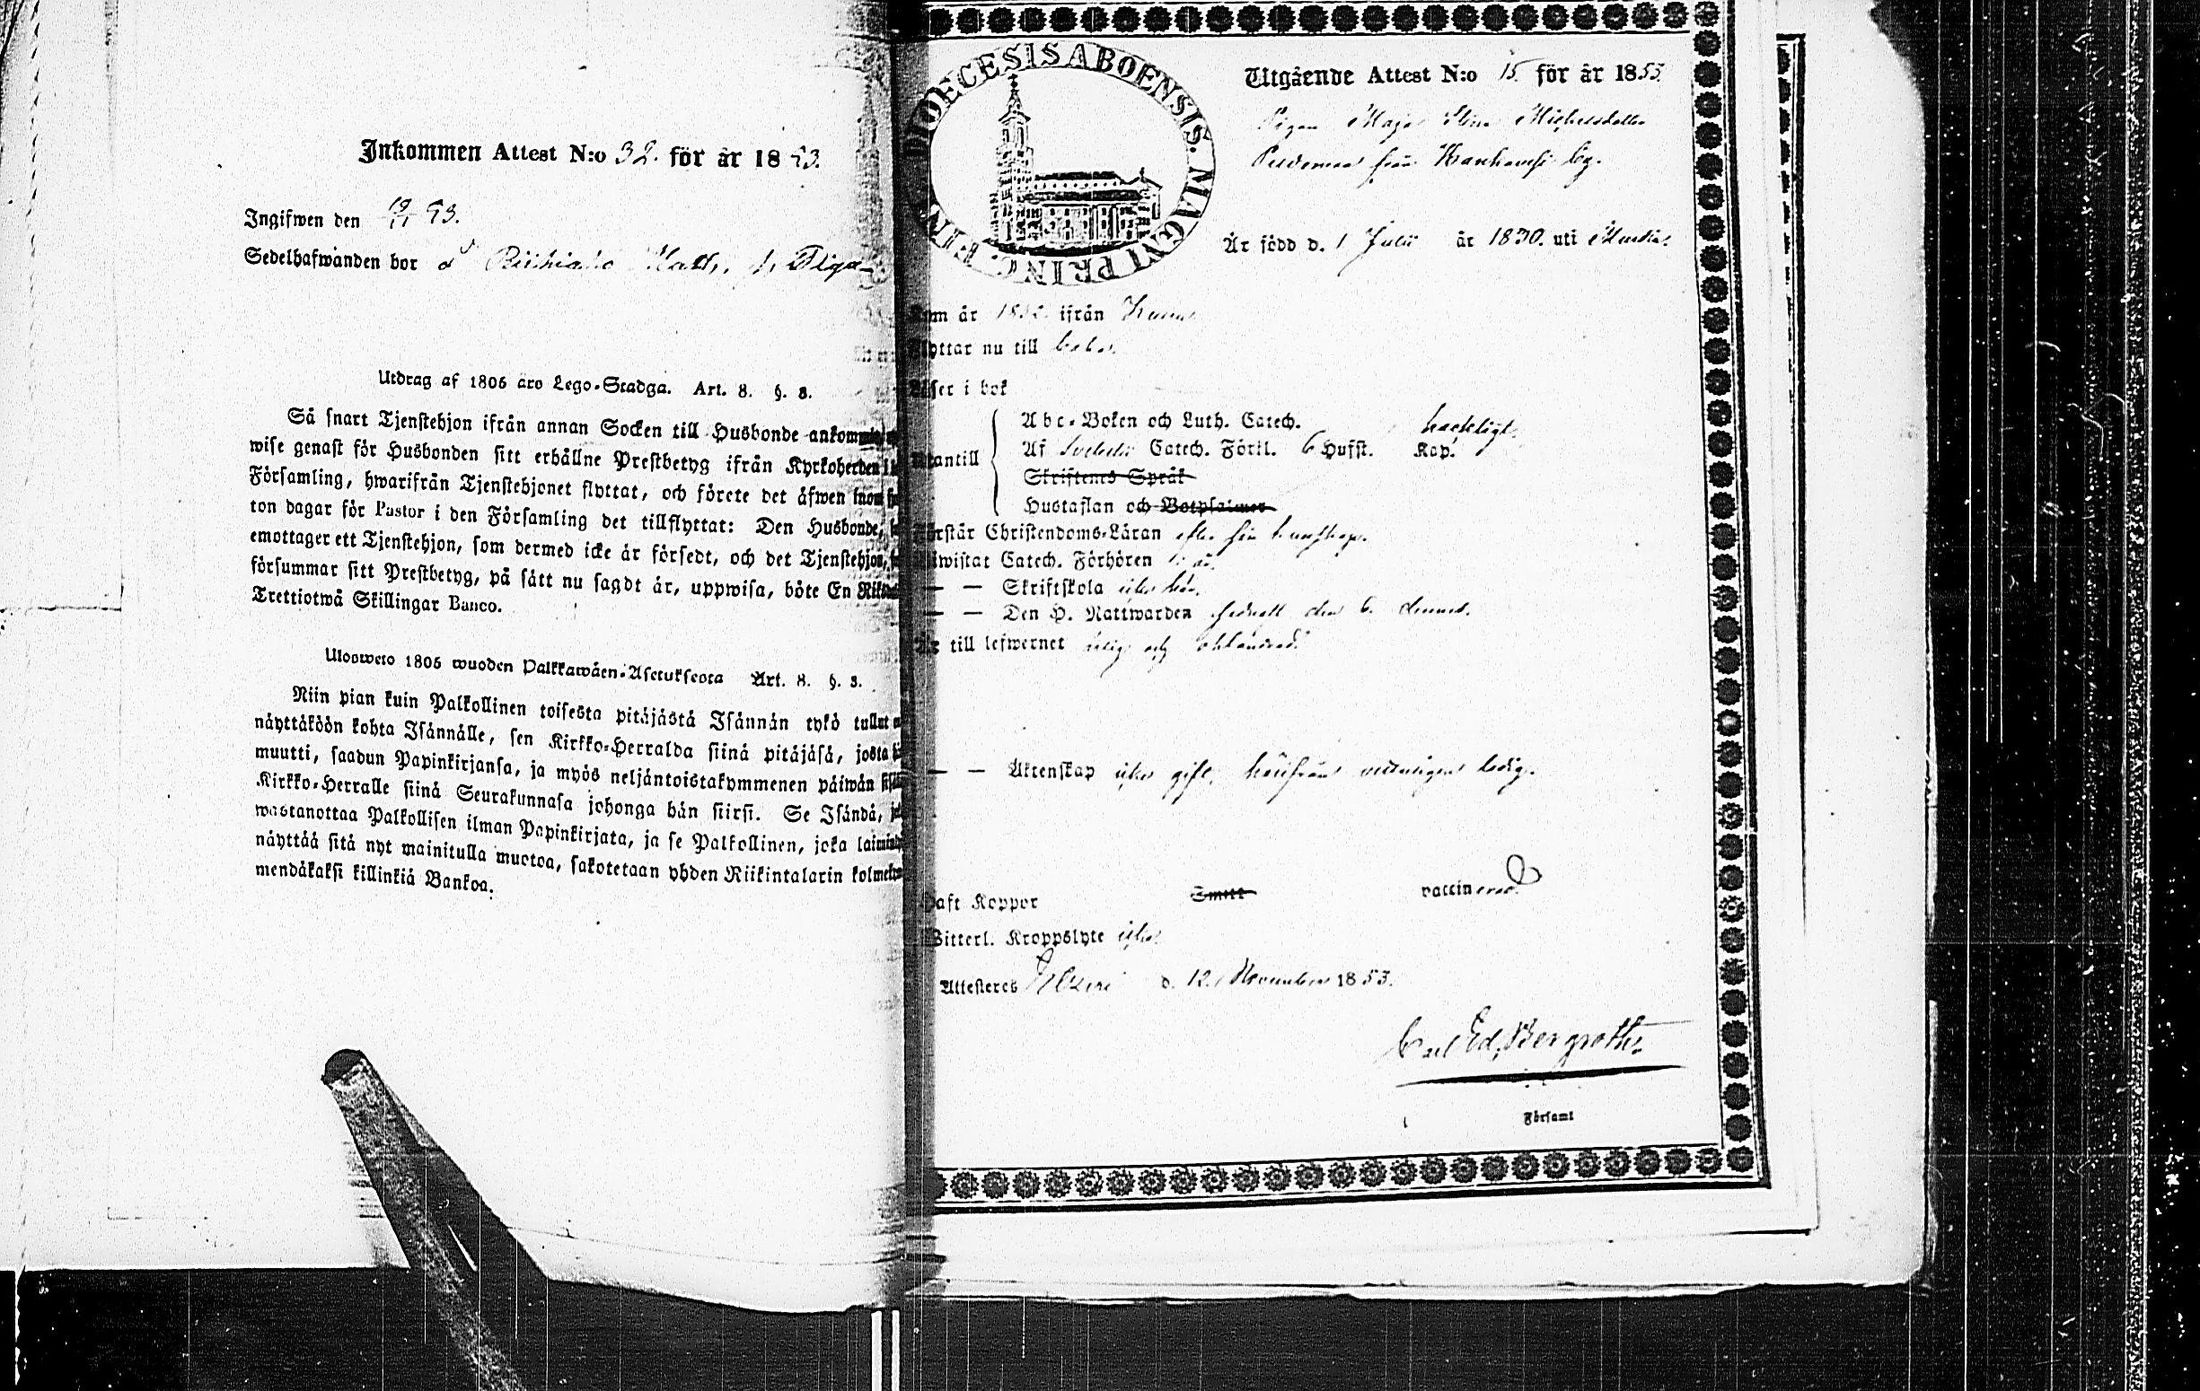 Inkommen Attest N:o 32. för år 1853.
Ingifwen den 19/11 53.
Sedelhafwanden bor å
Utdrag af 1805 års Lego-Stadga. Art. 8. §. 3.
Så snart Tjenstehjon ifrån annan Socken till Husbonde
wise genast för Husbonden sitt erhållne Prestbetyg ifrån Kyrkoherden i
Församling, hwarifrån Tjenstehjonet flyttat, och förete det äfwen inom
ton dagar för Pastor i den Församling det tillflyttat: Den Husbonde,
emottager ett Tjenstehjon, som dermed icke är försedt, och det Tjenstehjon,
försummar sitt Prestbetyg, på sätt nu sagdt är, uppwisa, böte En
Trettiotwå Skillingar Banco.
Ulosweto 1805 wuoden Palkkawäen-Asetuksesta Art. 8. §. 3.
Niin pian kuin Palkollinen toisesta pitäjästä Isännän tykö tullut
näyttäköön kohta Isännälle, sen Kirkko-Herralda siinä pitäjäsä, josta
muutti, saadun Papinkirjansa, ja myös neljäntoistakymmenen päiwän
Kirkko-Herralle siinä Seurakunnasa johonga hän siirsi. Se Isändä,
wastanottaa Palkollisen ilman Papinkirjata, ja se Palkollinen, joka
näyttää sitä nyt mainitulla muotoa, sakotetaan yhden Riikintalarin
mendäkaksi killinkiä Bankoa.
DIOECESIS ABOENSIS. MAGNI PRINC. FIN
Utgående Attest N:o 15. för år 1853.
Pigan Maja Stina Michelsdotter
från
Är född d. 1 Julii år 1830. uti
Kom år ifrån
Flyttar nu till
Läser i bok
Utantill
Abc-Boken och Luth. Catech. hackligt.
Af Svebelii Catech. Förkl. 6 Hufst. Kap.
Skriftenes Språk
Hustaflan och Botpsalmer
Förstår Christendoms-Läran efter sin kunskap.
Biwistat Catech. Förhören
— — Skriftskola
— — Den H. Nattwarden sednast den 6. dennes.
Är till lefwernet ärlig och
— — Äktenskap icke gift, härifrån veterligen ledig.
Haft Koppor Smitt vaccinerad.
Witterl. Kroppslyte icke.
Attesteres d. 12. November 1853.
Carl Ed. Bergroth.
Församl